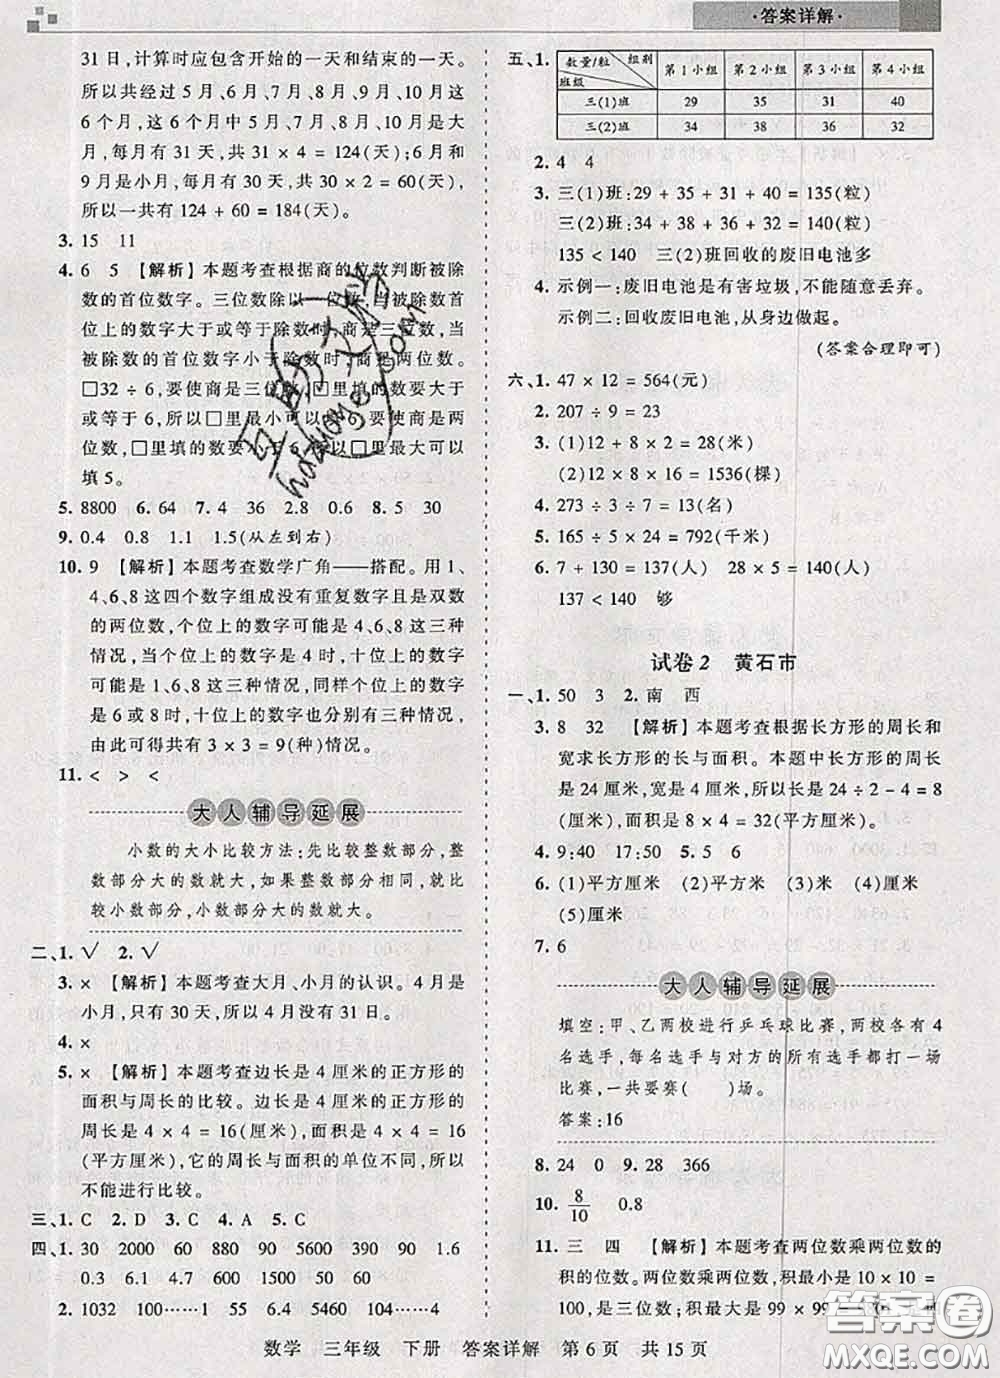 ·答案详解·
31日,计算时应包含开始的一天和结束的一天。
所以共经过5月、6月、7月、8月、9月、10月这
6个月,这6个月中5月、7月、8月、10月是大
月,每月有31天,共31×4=124(天);6月和
9月是小月,每月有30天,共30×2=60(天),
所以一共有124+60=184(天)。
3. 15 11
4. 6 5 【解析】本题考查根据商的位数判断被除
数的首位数字。三位数除以一位数,当被除数首
位上的数字大于或等于除数时,商是三位数,当
被除数的首位数字小于除数时,商是两位数。
□32÷6,要使商是三位数,□里填的数要大于
或等于6,所以□里最小可以填6,要使商是两
位数,□里填的数要小于6,所以□里最大可以
填5。
5. 8800 6. 64 7. 4 36 2.8 0.6 8. 5 30
9. 0.4 0.8 1.1 1.5(从左到右)
10. 9 【解析】本题考查数学广角——搭配。用1、
4、6、8这四个数字组成没有重复数字且是双数
的两位数,个位上的数字可能是4、6、8这三种
情况,当个位上的数字是4时,十位上的数字
可能是1、6、8这三种情况,同样个位上的数字
是6或8时,十位上的数字也分别有三种情况,
由此可得共有3×3=9(种)情况。
11. < > <
大人辅导延展
小数的大小比较方法:先比较整数部分,整
数部分大的数就大,如果整数部分相同,就比
较小数部分,小数部分大的数就大。
二、1. √ 2. √
3. × 【解析】本题考查大月、小月的认识。4月是
小月,只有30天,所以4月没有31日。
4. ×
5. × 【解析】本题考查边长是4厘米的正方形的
面积与周长的比较。边长是4厘米的正方形的
周长是4×4=16(厘米),面积是4×4=16
(平方厘米),它的周长与面积的意义不同,所以
不能进行比较。
三、1. C 2. D 3. C 4. A 5. C
四、1. 30 2000 60 880 90 5600 390 90 1.6
0.3 6.1 4.7 600 1500 50 60
2. 1032 100……1 55 6.4 5460 104……4
五、1.
数量/粒 组别 班级 第1小组 第2小组 第3小组 第4小组
三(1)班 29 35 31 40
三(2)班 34 38 36 32
2. 4 4
3. 三(1)班:29+35+31+40=135(粒)
三(2)班:34+38+36+32=140(粒)
135<140 三(2)班回收的废旧电池多
4. 示例一:废旧电池是有害垃圾,不能随意丢弃。
示例二:回收废旧电池,从身边做起。
(答案合理即可)
六、1. 47×12=564(元)
2. 207÷9=23
3. (1)12+8×2=28(米)
(2)12×8×16=1536(棵)
4. 273÷3÷7=13(名)
5. 165÷5×24=792(千米)
6. 7+130=137(人) 28×5=140(人)
137<140 够
试卷2 黄石市
一、1. 50 3 2. 南 西
3. 8 32 【解析】本题考查根据长方形的周长和
宽求长方形的长与面积。本题中长方形的周长
是24厘米,宽是4厘米,所以长是24÷2-4=8
(厘米),面积是8×4=32(平方厘米)。
4. 9:40 17:50 5. 5 6
6. (1)平方厘米 (2)平方米 (3)米 (4)厘米
(5)厘米
7. 6
大人辅导延展
填空:甲、乙两校进行乒乓球比赛,两校各有4
名选手,每名选手与对方的所有选手都打一场
比赛,一共要赛( )场。
答案:16
8. 24 0 9. 28 366
10. 8/10 0.8
11. 三 四 【解析】本题考查两位数乘两位数的
积的位数。两位数乘两位数,积最小是10×10=
100,是三位数;积最大是99×99
数学 三年级 下册 答案详解 第6页 共15页
互助文档
hdzuoye.com
答案圈
MXQE.COM